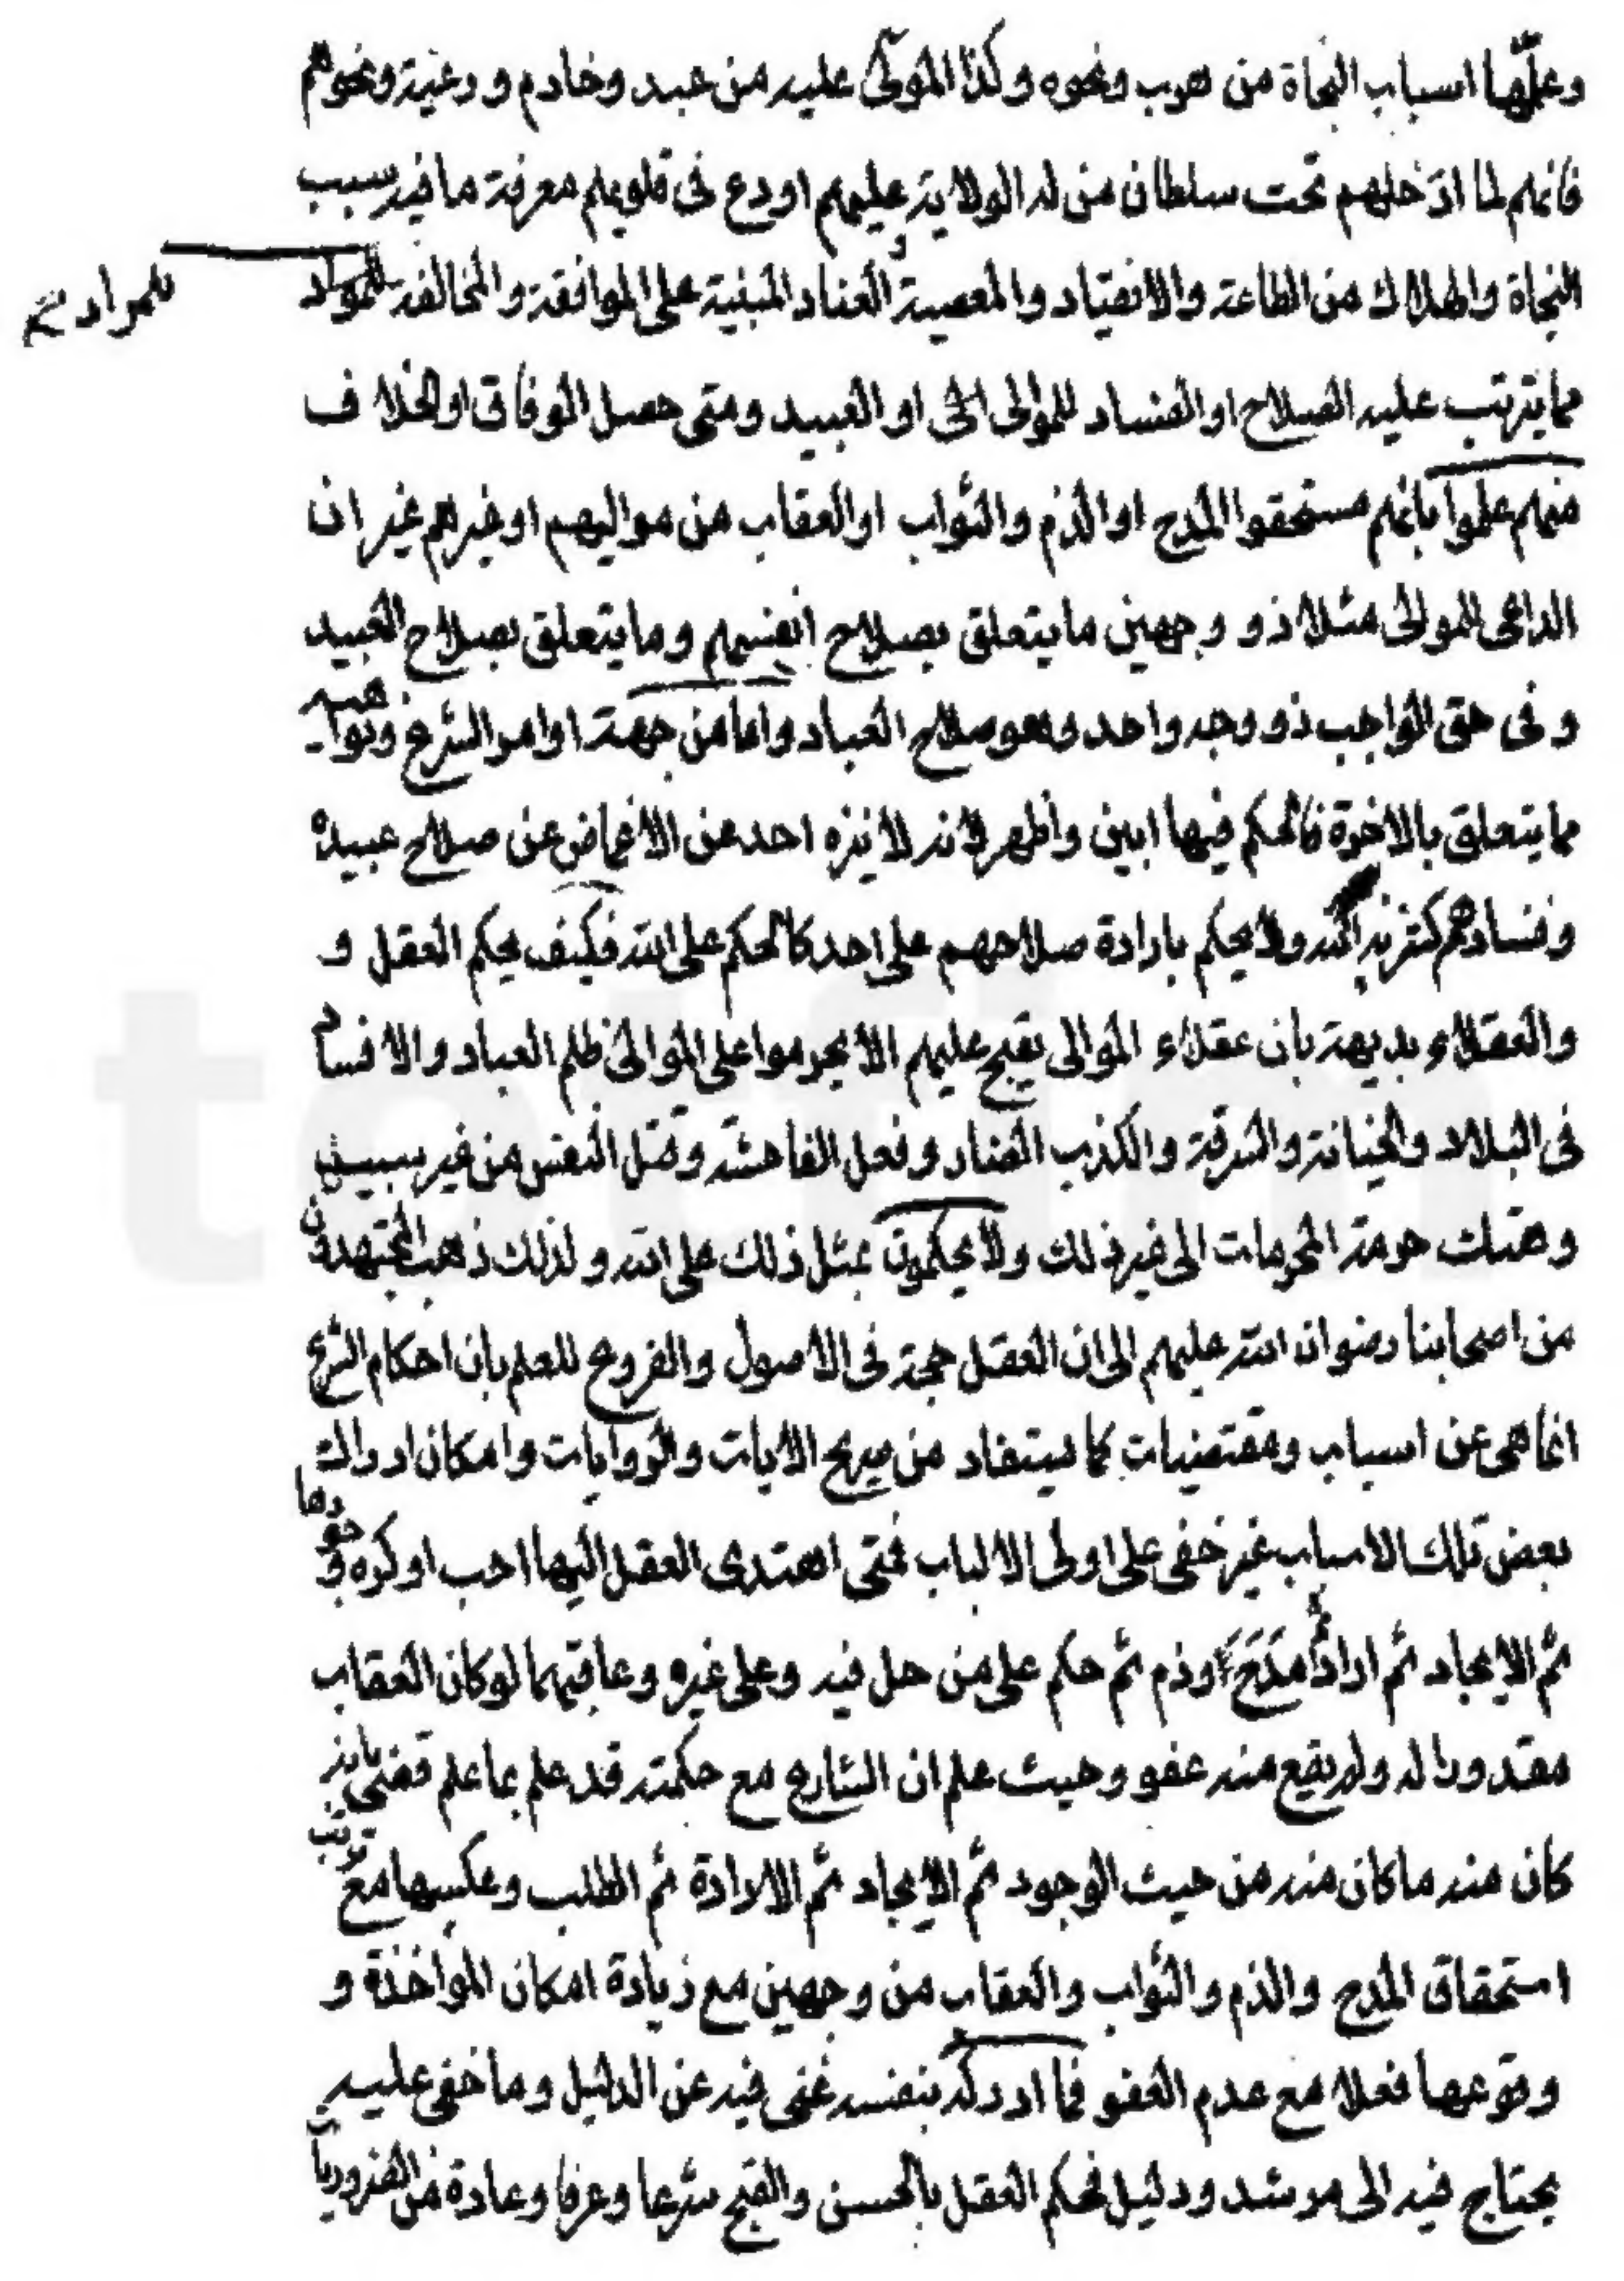 وعلّمها اسباب النجاة من هرب ونحوه وكذا المولّى عليه من عبد وخادم ورعية ونحوهم
فانهم لما ادخلهم تحت سلطان من له الولاية عليهم اودع فى قلوبهم معرفة ما فيه سبب
النجاة والهلاك من الطاعة والانقياد والمعصية و العناد المبنية على الموافقة والمخالفة للمراد
للمراد
مما يترتب عليه الصلاح او الفساد للموالى او العبيد ومتى حصل الوفاق او الخلاف
منهم علموا بانهم مستحقوا المدح او الذم والثواب او العقاب من مواليهم او غيرهم غير ان
الداعى للموالى مثلا ذو وجهين ما يتعلق بصلاح انفسهم وما يتعلق بصلاح العبيد
وفى حق الواجب ذو وجه واحد وهو صلاح العباد واما من جهة اوامر الشرع ونواهيه
مما يتعلق بالاخرة فالحكم فيها ابين واظهر لانه لا ينزه احد عن الاغماض عن صلاح عبيده
وفسادهم كتنزيه الله ولا يحكم بارادة صلاحهم على احد كالحكم على الله فكيف يحكم العقل و
والعقلاء بديهة بان عقلاء الموالى يقبح عليهم الا يحرموا على الموالى ظلم العباد والافساد
فى البلاد والخيانة والسرقة والكذب الضار وفعل الفاحشة وقتل النفس من غير سبب
وهتك حرمة المحرمات الى غير ذلك ولا يحكمون بمثل ذلك على الله ولذلك ذهب المجتهدون
من اصحابنا رضوان الله عليهم الى ان العقل حجة فى الاصول والفروع للعلم بان احكام الشرع
انما هى عن اسباب ومقتضيات كما يستفاد من صريح الايات والروايات وامكان ادراك
بعض تلك الاسباب غير خفى على اولى الالباب فمتى اهتدى العقل اليها احب او كره وجودها
ثم الايجاد ثم اراد ثم مدح او ذم ثم حكم على من حل فيه وعلى غيره وعاقبهما لو كان العقاب
مقدورا له ولم يقع منه عفو وحيث علم ان الشارع مع حكمته قد علم بما علم قضى بانه
كان منه ما كان منه من حيث الوجود ثم الايجاد ثم الارادة ثم الطلب وعكسها مع ترتب
استحقاق المدح والذم والثواب والعقاب من وجهين مع زيادة امكان المواخذة و
وقوعها فعلا مع عدم العفو فما ادركه بنفسه غنى فيه عن الدليل وما خفى عليه
يحتاج فيه الى مرشد ودليل فحكم العقل بالحسن والقبح شرعا وعرفا وعادة من الضروريات